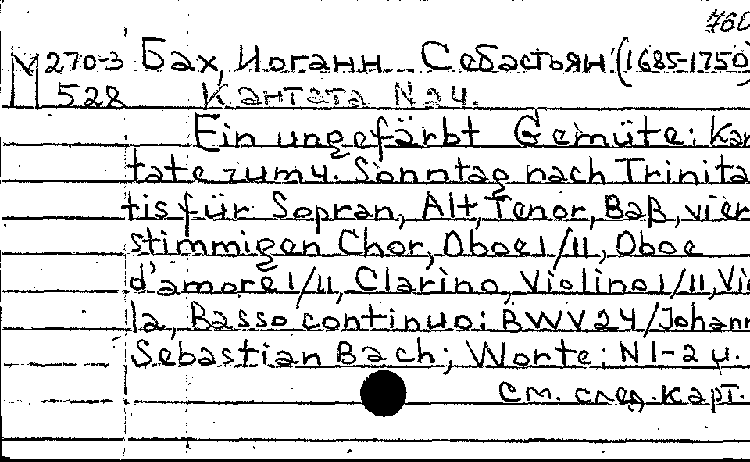 460
М 270-3 Бах, Иоганн Себастьян (1685-1750)
528 Кантата N 24.
Ein ungefärbt Gemüte: Kan
tate zum 4. Sonntag nach Trinita
tis für Sopran, Alt, Tenor, Baß, vier
stimmigen Chor, Oboe I/II, Oboe
d'amore I/II, Clarino, Violino I/II, Vio
la, Basso continuo: BWV 24/Johann
Sebastian Bach; Worte: N 1-2 u.
см. след. карт.